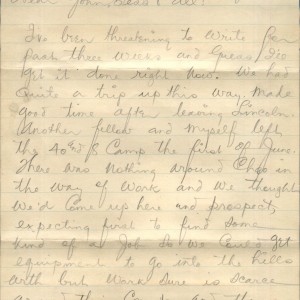 Dear John,
I've been threatening to write for
past three weeks and guess I'll
get it done right now. We had
quite a trip up this way. Made
good time after leaving Lincoln.
Another fellow and myself left
the Camp the first of June.
There was nothing around in
the way of work and we thought
We'd come up here and prospect,
expecting first to find some
kind of a job so we could get
equipment to go into the hills
with but work sure is scarce
and the